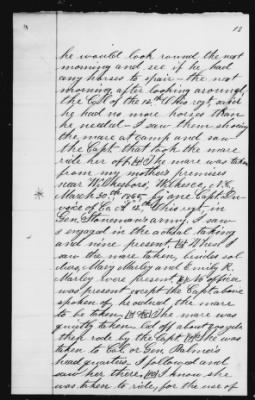 13
he would look round the next
morning and see if he had
any horses to spare - the next
morning after looking around,
the Col of the 12th Ohio regt, said
he had no more horses than
he needed - I saw them shoeing
the mare at camp and saw
the Capt - that took the mare
ride her off. The mare was taken
from my mother's premises
near Wilkesboro, Wilkes Co, N.C.
March 30th 1865 by one Capt.
of Co. A 12th Ohio regt in
Gen. Stoneman's army. I saw
3 engaged in the actual taking
and nine present. When I
saw the mare taken, besides sol
diers, Mary Marley and Emily R.
Marley were present. No officer
was present except the Capt. above
spoken of, he ordered the mare
to be taken. The mare was
quietly taken led off about 200 yds
then rode by the Capt. She was
taken to Col. or Gen. Palmer's
headquarters. I followed and
saw her there. I know she
was taken to ride, for the use of